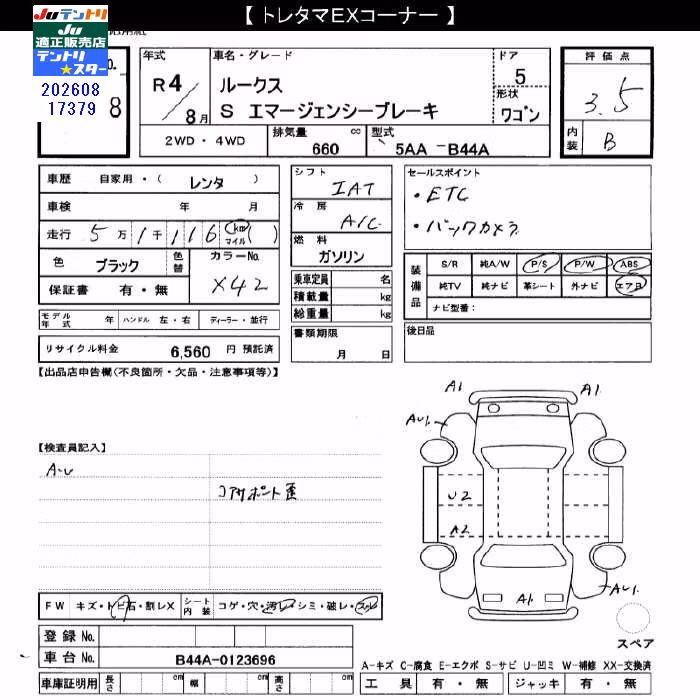 【 トレタマEXコーナー 】
Juテントリ
Ju
適正販売店
テントリ
★スター
202608
17379
No.
8
年式
R4/8月
車名・グレード
ルークス
S エマージェンシーブレーキ
ドア
5
形状
ワゴン
評価点
3.5
内装
B
2WD・4WD
排気量
660
cc
型式
5AA -B44A
車歴 自家用・( レンタ )
車検 年 月
走行 5万1千116 (km マイル)( )
色 ブラック
色替
カラーNo.
X42
保証書 有・無
モデル年式 年
ハンドル 左・右
ディーラー・並行
リサイクル料金 6,560 円 預託済
シフト
IAT
冷房
A/C
燃料
ガソリン
乗車定員 名
積載量 kg
総重量 kg
書類期限
月 日
セールスポイント
・ETC
・バックカメラ
装備品
S/R 純A/W P/S P/W ABS
純TV 純ナビ 革シート 外ナビ エアB
ナビ型番:
後日品
【出品店申告欄(不良箇所・欠品・注意事項等)】
【検査員記入】
A-U
コアサポート歪
A1
A1
AU1
U2
A2
A1
AU1
スペア
FW キズ・トビ石・割レX
シート内装
コゲ・穴・汚レ・シミ・破レ・スレ
登録No.
車台No. B44A-0123696
車庫証明用 長さ cm 幅 cm 高さ cm
A-キズ C-腐食 E-エクボ S-サビ U-凹ミ W-補修 XX-交換済
工具 有・無 ジャッキ 有・無